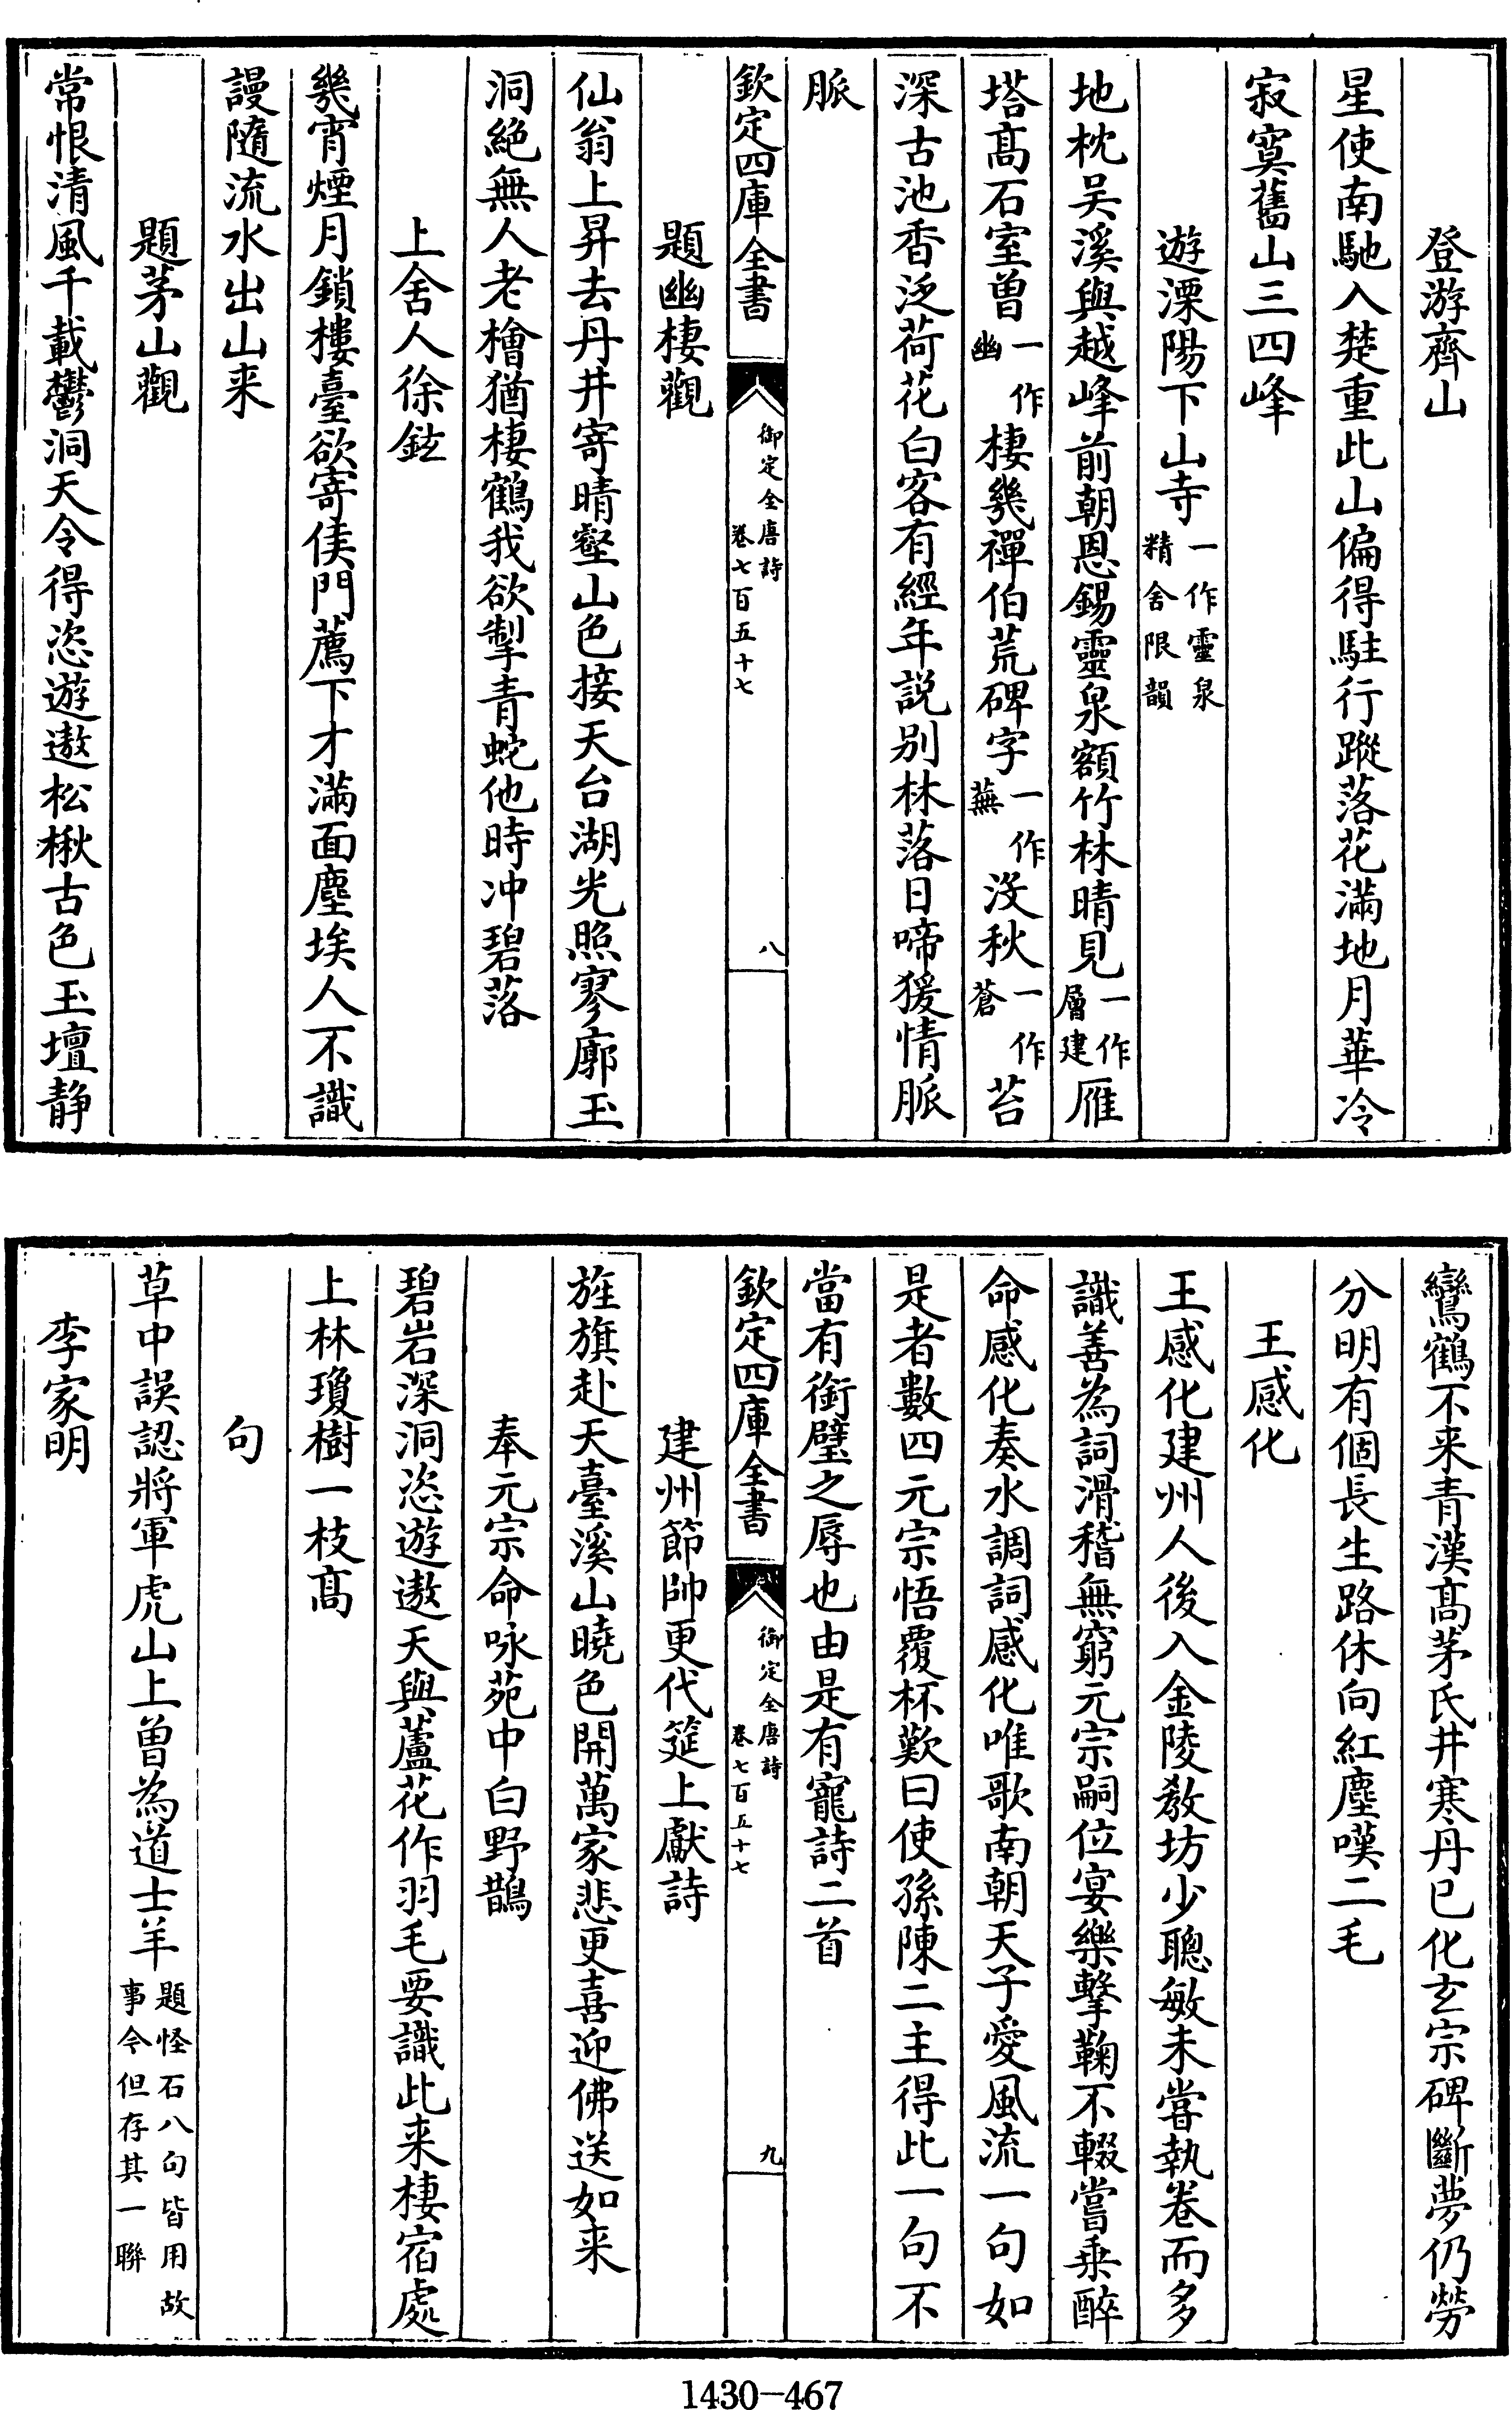 登游齊山
星使南馳入楚重此山偏得駐行蹤落花滿地月華冷
寂寞舊山三四峰
遊溧陽下山寺一作靈泉精舍限韻
地枕吴溪與越峰前朝恩錫靈泉額竹林晴見一作層建雁
塔髙石室曽一作幽棲幾禪伯荒碑字一作蕪沒秋一作蒼苔
深古池香泛荷花白客有經年説别林落日啼猨情脈
脈
欽定四庫全書 御定全唐詩卷七百五十七 八
題幽棲觀
仙翁上昇去丹井寄晴壑山色接天台湖光照寥廓玉
洞絶無人老檜猶棲鶴我欲掣青蛇他時冲碧落
上舍人徐鉉
幾宵煙月鎖樓臺欲寄侯門薦下才滿面塵埃人不識
謾隨流水出山来
題茅山觀
常恨清風千載鬱洞天令得恣遊遨松楸古色玉壇静
鸞鶴不来青漢髙茅氏井寒丹已化玄宗碑斷夢仍勞
分明有個長生路休向紅塵嘆二毛
王感化
王感化建州人後入金陵教坊少聰敏未嘗執卷而多
識善為詞滑稽無窮元宗嗣位宴樂擊鞠不輟嘗乗醉
命感化奏水調詞感化唯歌南朝天子愛風流一句如
是者數四元宗悟覆杯歎曰使孫陳二主得此一句不
當有銜璧之辱也由是有寵詩二首
欽定四庫全書 御定全唐詩卷七百五十七 九
建州節帥更代筵上獻詩
旌旗赴天臺溪山曉色開萬家悲更喜迎佛送如来
奉元宗命咏苑中白野鵲
碧岩深洞恣遊遨天與蘆花作羽毛要識此来棲宿處
上林瓊樹一枝髙
句
草中誤認將軍虎山上曽為道士羊題怪石八句皆用故事今但存其一聯
李家明
1430-467